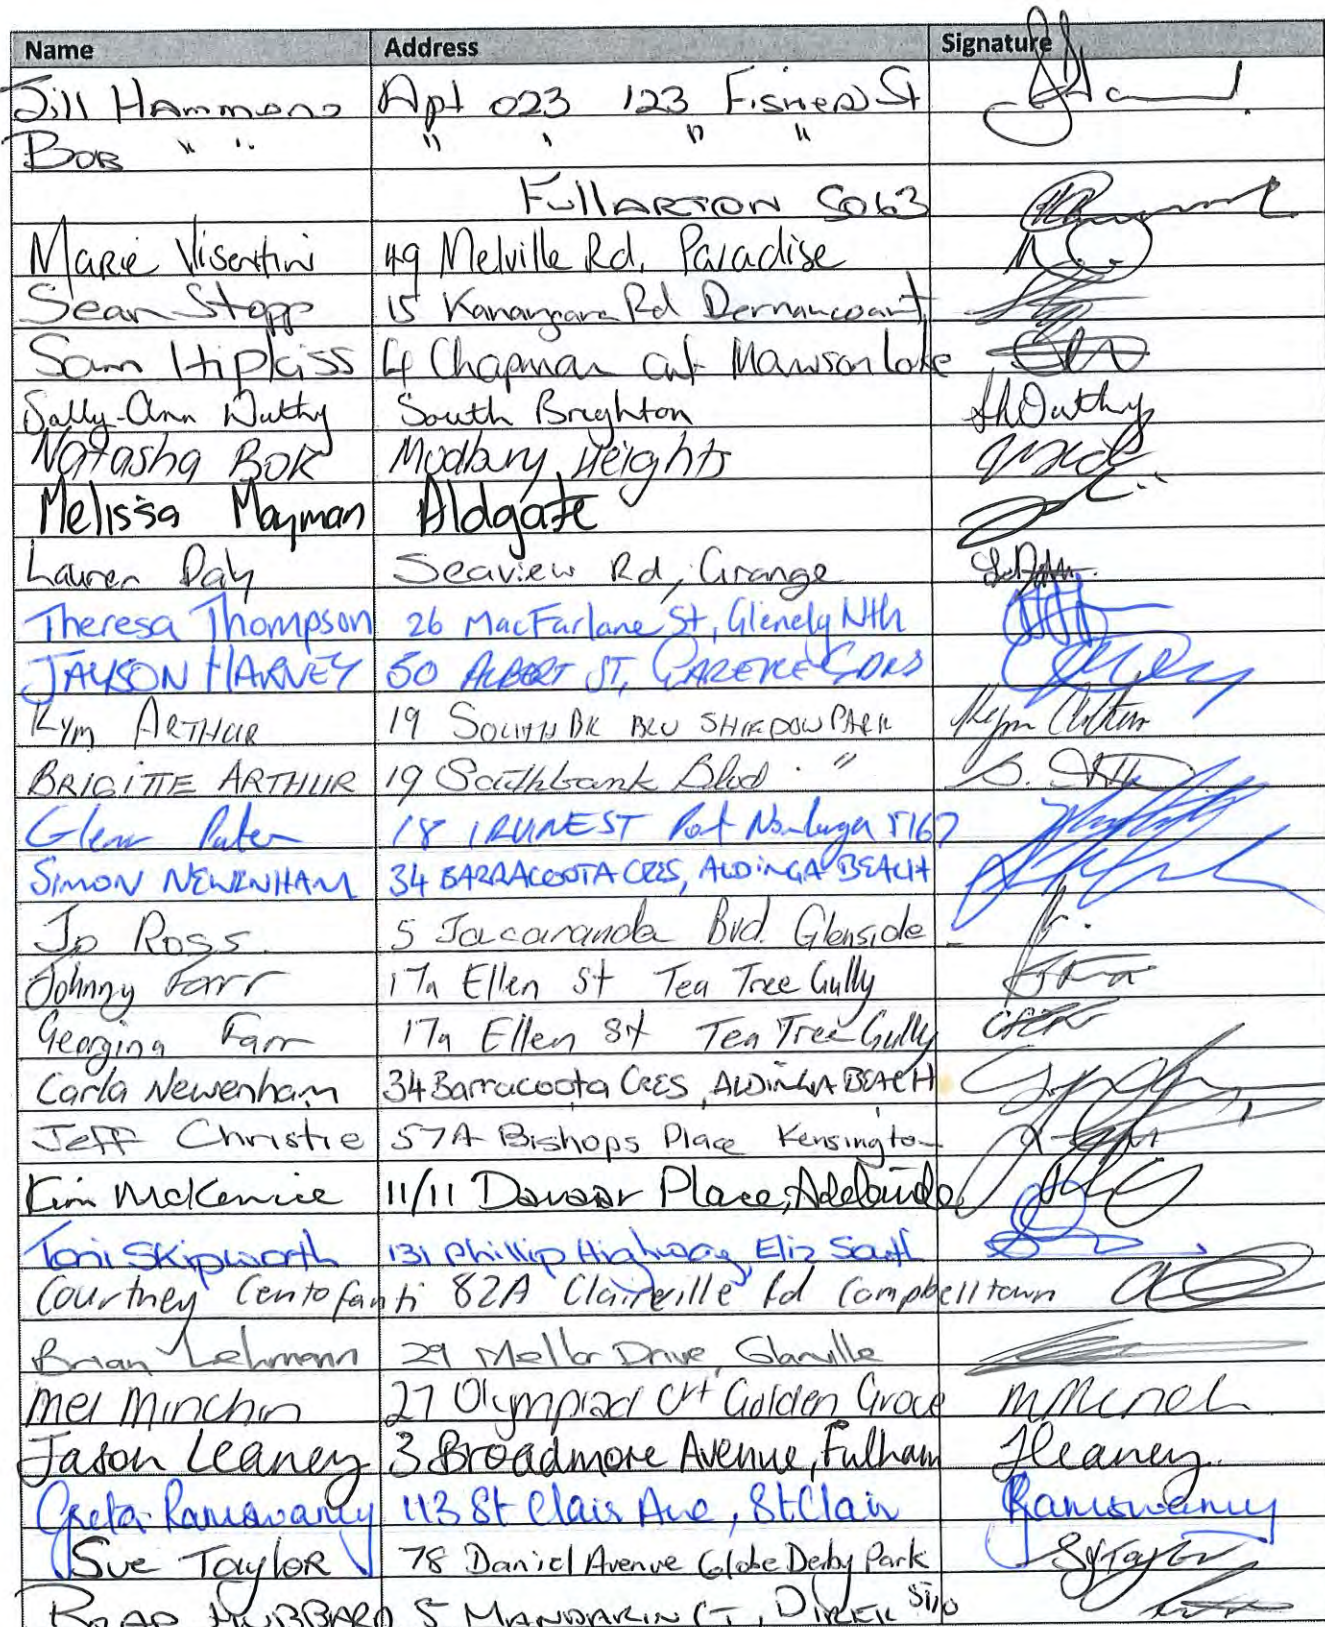 Name Address Signature
Jill Hammond Apt 023 123 Fisher St
Bob " " " " " "
Fullarton 5063
Marie Visentini 49 Melville Rd, Paradise
Sean Stopp 15 Kanangara Rd Dernancourt
Sam Hipkiss 4 Chapman Mawson Lake
Sally-Ann South Brighton
Natasha Bok Modbury Heights
Melissa Mayman Aldgate
Lauren Daly Seaview Rd, Grange
Theresa Thompson 26 MacFarlane St, Glenelg Nth
JAYSON HARVEY 50 ALBERT ST,
Kym ARTHUR 19 SOUTH BK PARK
BRIGITTE ARTHUR 19 Southbank Blvd "
Glenn 18 IRVINE ST Port Noarlunga 5167
SIMON NEWENHAM 34 BARRACOOTA CRES, ALDINGA BEACH
Jo Ross 5 Jacaranda Bvd. Glenside
Johnny Farr 17a Ellen St Tea Tree Gully
Georgina Farr 17a Ellen St Tea Tree Gully
Carla Newenham 34 Barracoota CRES, ALDINGA BEACH
Jeff Christie 57A Bishops Place Kensington
Kim McKenzie 11/11 Place, Adelaide
Toni Skipworth 131 Phillip Highway, Eliz South
Courtney Centofanti 82A Claireville Rd Campbelltown
Brian Lehmann 29 Mellor Drive, Glanville
Mel Minchin 27 Olympiad Crt Golden Grove M Minch
Jason Leaney 3 Broadmore Avenue, Fulham JLeaney
Greta Ramswamy 113 St Clair Ave, St Clair Ramswamy
Sue Taylor 78 Daniel Avenue Globe Derby Park SJTaylor
BRAD HUBBARD 5 MANDARIN CT, DIREK 5110